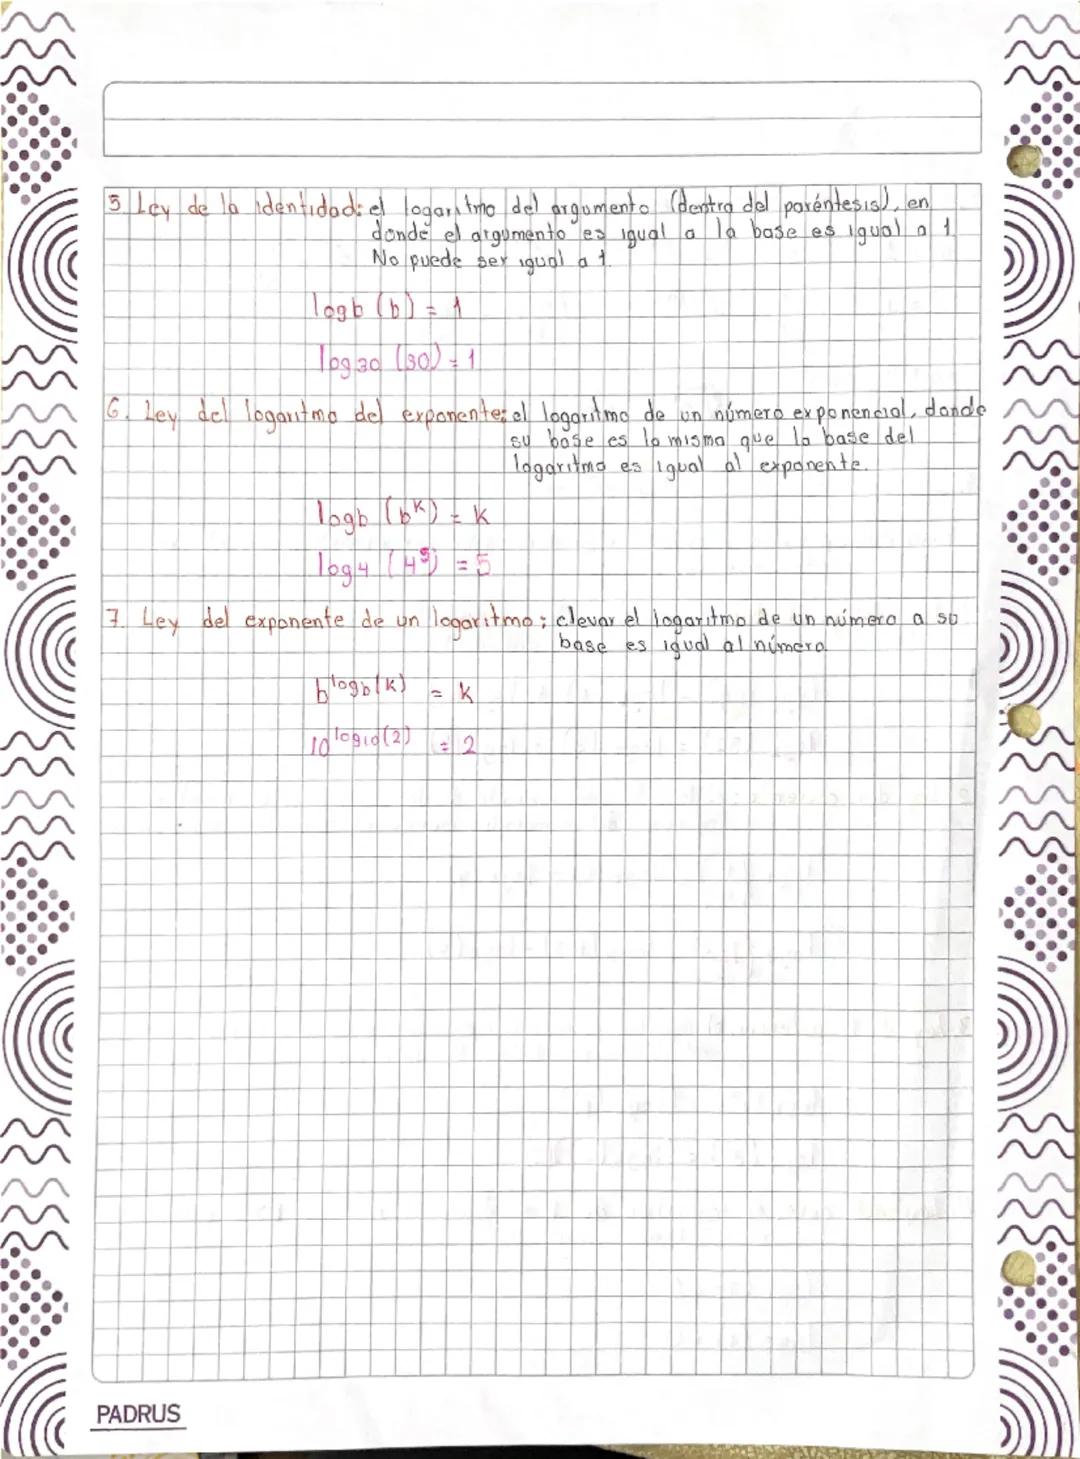 5 Ley de la identidad: el logaritmo del argumento (dentro del paréntesis), en
donde el argumento es igual a la base es igual a 1.
No puede ser igual a 1.
logb (b) = 1
log30 (30) = 1
6. Ley del logaritmo del exponente: el logaritmo de un número exponencial, donde
su base es la misma que la base del
logaritmo es igual al exponente.
logb (bᵏ) = k
log4 (4⁵) = 5
7. Ley del exponente de un logaritmo: elevar el logaritmo de un número a su
base es igual al número.
b^logb(k) = k
10^log10(2) = 2
PADRUS